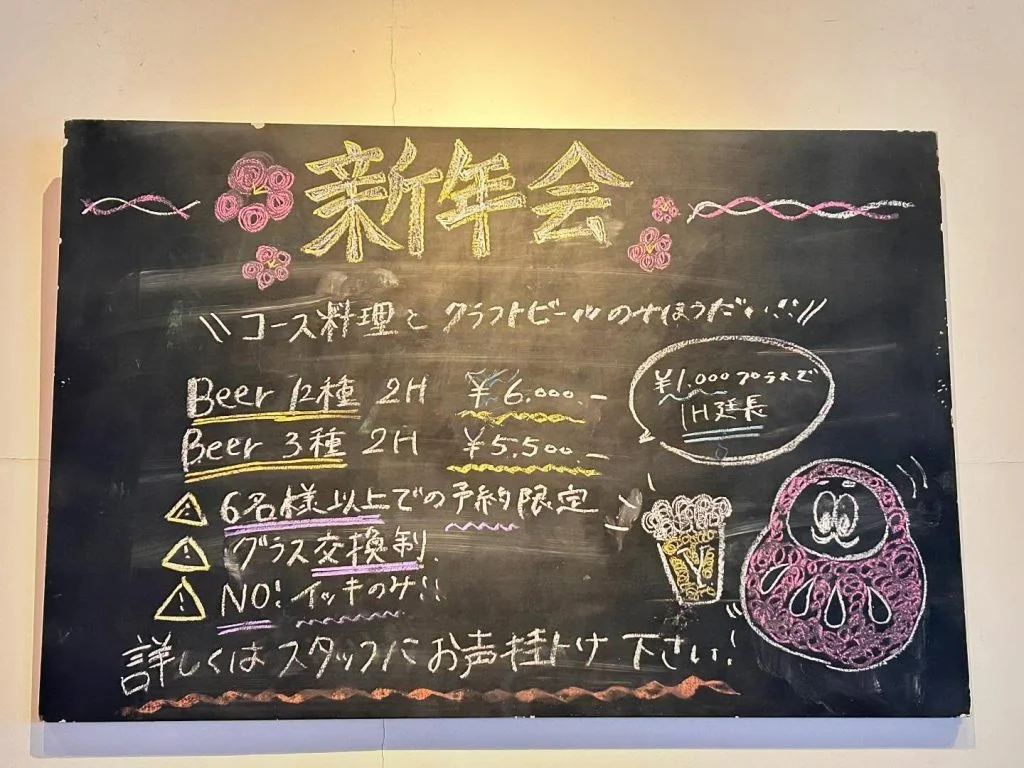 新年会
\\コース料理とクラフトビールのみほうだい!!//
Beer 12種 2H ¥6,000.-
Beer 3種 2H ¥5,500.-
¥1,000プラスで
1H延長
⚠ 6名様以上での予約限定
⚠ グラス交換制
⚠ NO! イッキのみ!!
詳しくはスタッフにお声掛け下さい!